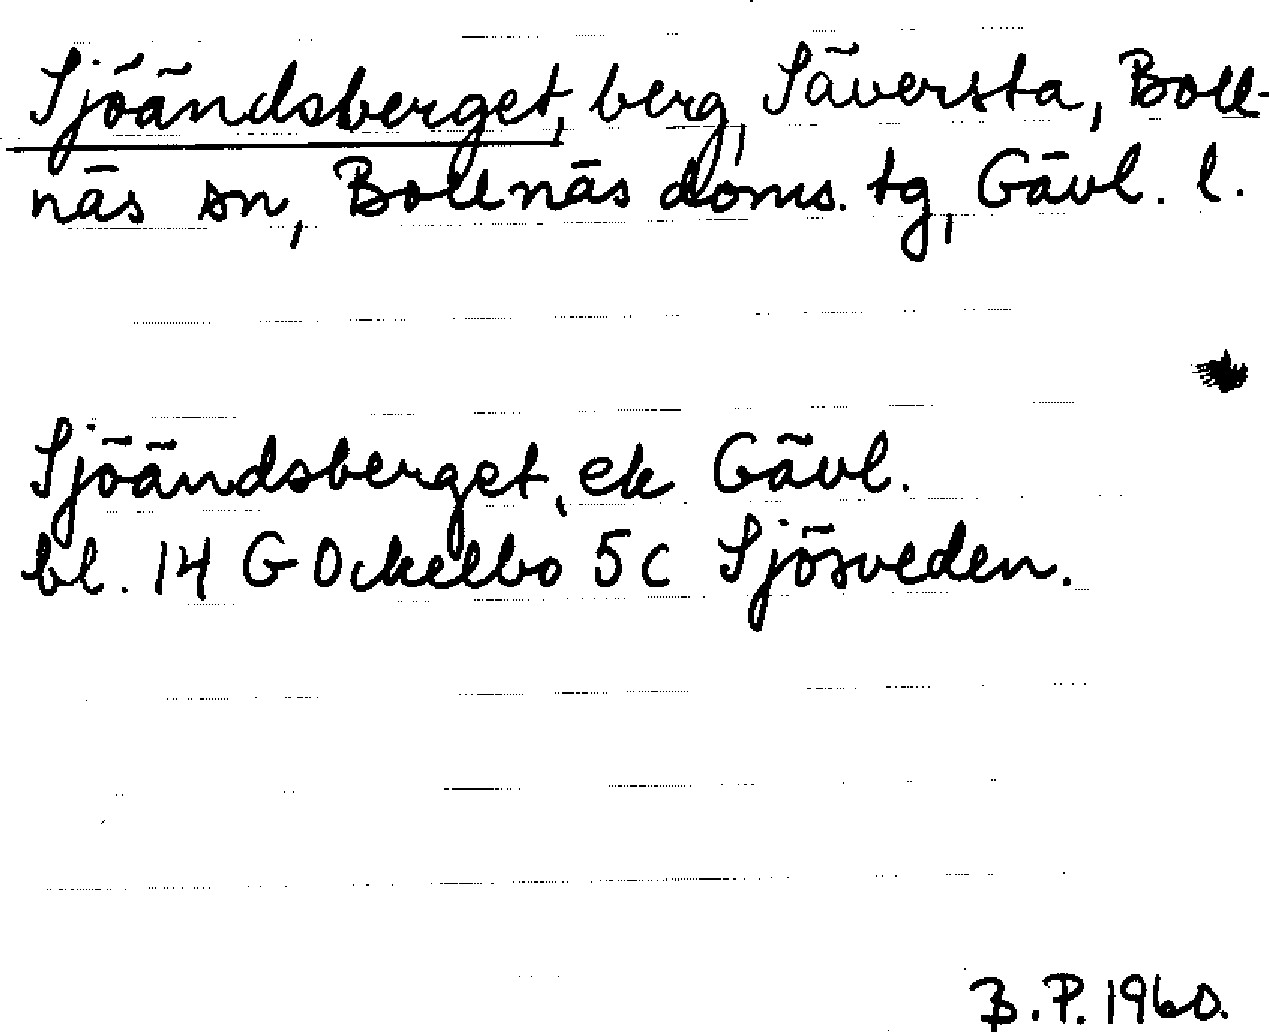 Sjöändsberget, berg, Säversta, Boll-
näs sn, Bollnäs doms. tg, Gävl. l.
Sjöändsberget, ek Gävl.
bl. 14 G Ockelbo 5 c Sjösveden.
B.P. 1960.